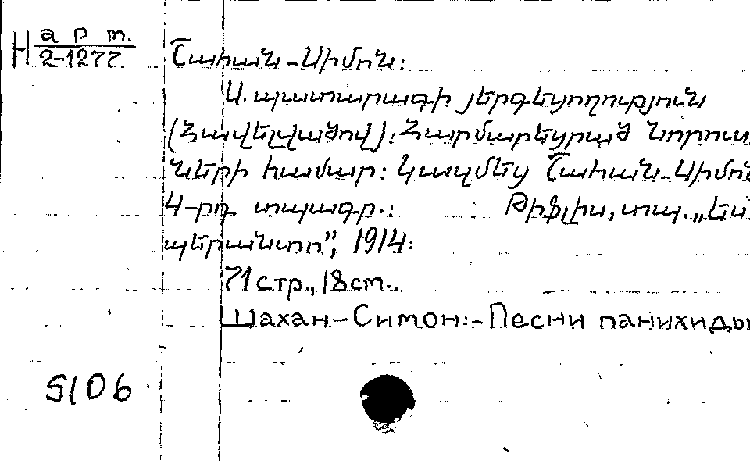 Н арт.
2-1277.
Շահան-Սիմոն:
Ս. պատարագի յերգեցողություն
(Հավելվածով): Հարմարեցրած նորուս
ների համար: Կազմեց Շահան-Սիմոն
4-րդ տպագր.: Թիֆլիս, տպ. „Ես
պերանտո”, 1914:
71 стр., 18 cm.
Шахан-Симон:-Песни панихиды
5106